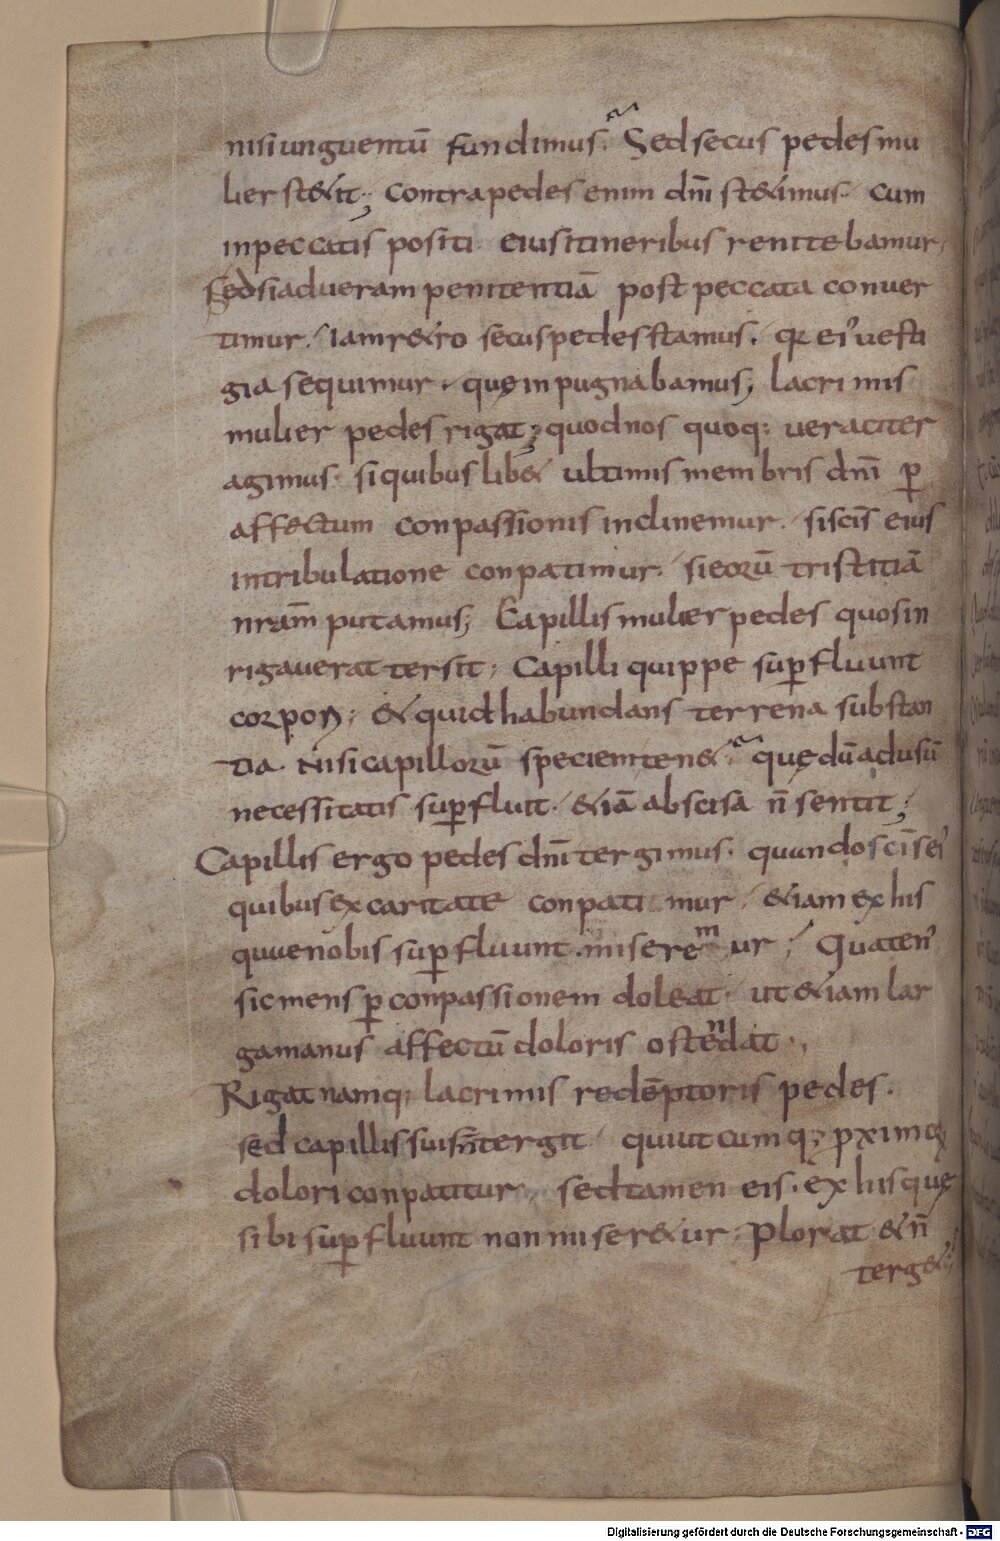 nisi unguentū fundimus; Sed secus pedes mu
lier st&it; Contra pedes enim dnī st&imus. cum
in peccatis positi. eius itineribus renitebamur,
Sed si ad ueram penitentiā post peccata conuer
timur. Iam r&ro secus pedes stamus. qR ei' uesti
gia sequimur. quę inpugnabamus; lacrimis
mulier pedes rigat; quod nos quoq; ueraciter
agimus. si quibuslib& ultimis membris dnī ꝑ
affectum conpassionis inclinemur. si scīs eius
in tribulatione conpatimur. si eorū tristitiā
nrām putamus; Capillis mulier pedes quos in
rigauerat tersit; Capilli quippe suꝑfluunt
corpori; & quid habundans terrena substan
tia. nisi capillorū speciem ten&; quę dū ad usū
necessitatis suꝑfluit. &iā abscisa n̄ sentit;
Capillis ergo pedes dnī tergimus. quando scīs ei'
quibus ex caritate conpatimur. &iam ex his
quue nobis suꝑfluunt. miseremur; Quaten'
sic mens ꝑ conpassionem doleat. ut &iam lar
ga manus affectū doloris ostendat.
Rigat namq; lacrimis redēptoris pedes.
sed capillis suis n̄ tergit. qui utcumq; pximoꝝ
dolori conpatitur. sed tamen eis. ex his quę
sibi suꝑfluunt non miser&ur. Plorat & n̄
terg&;
Digitalisierung gefördert durch die Deutsche Forschungsgemeinschaft - DFG